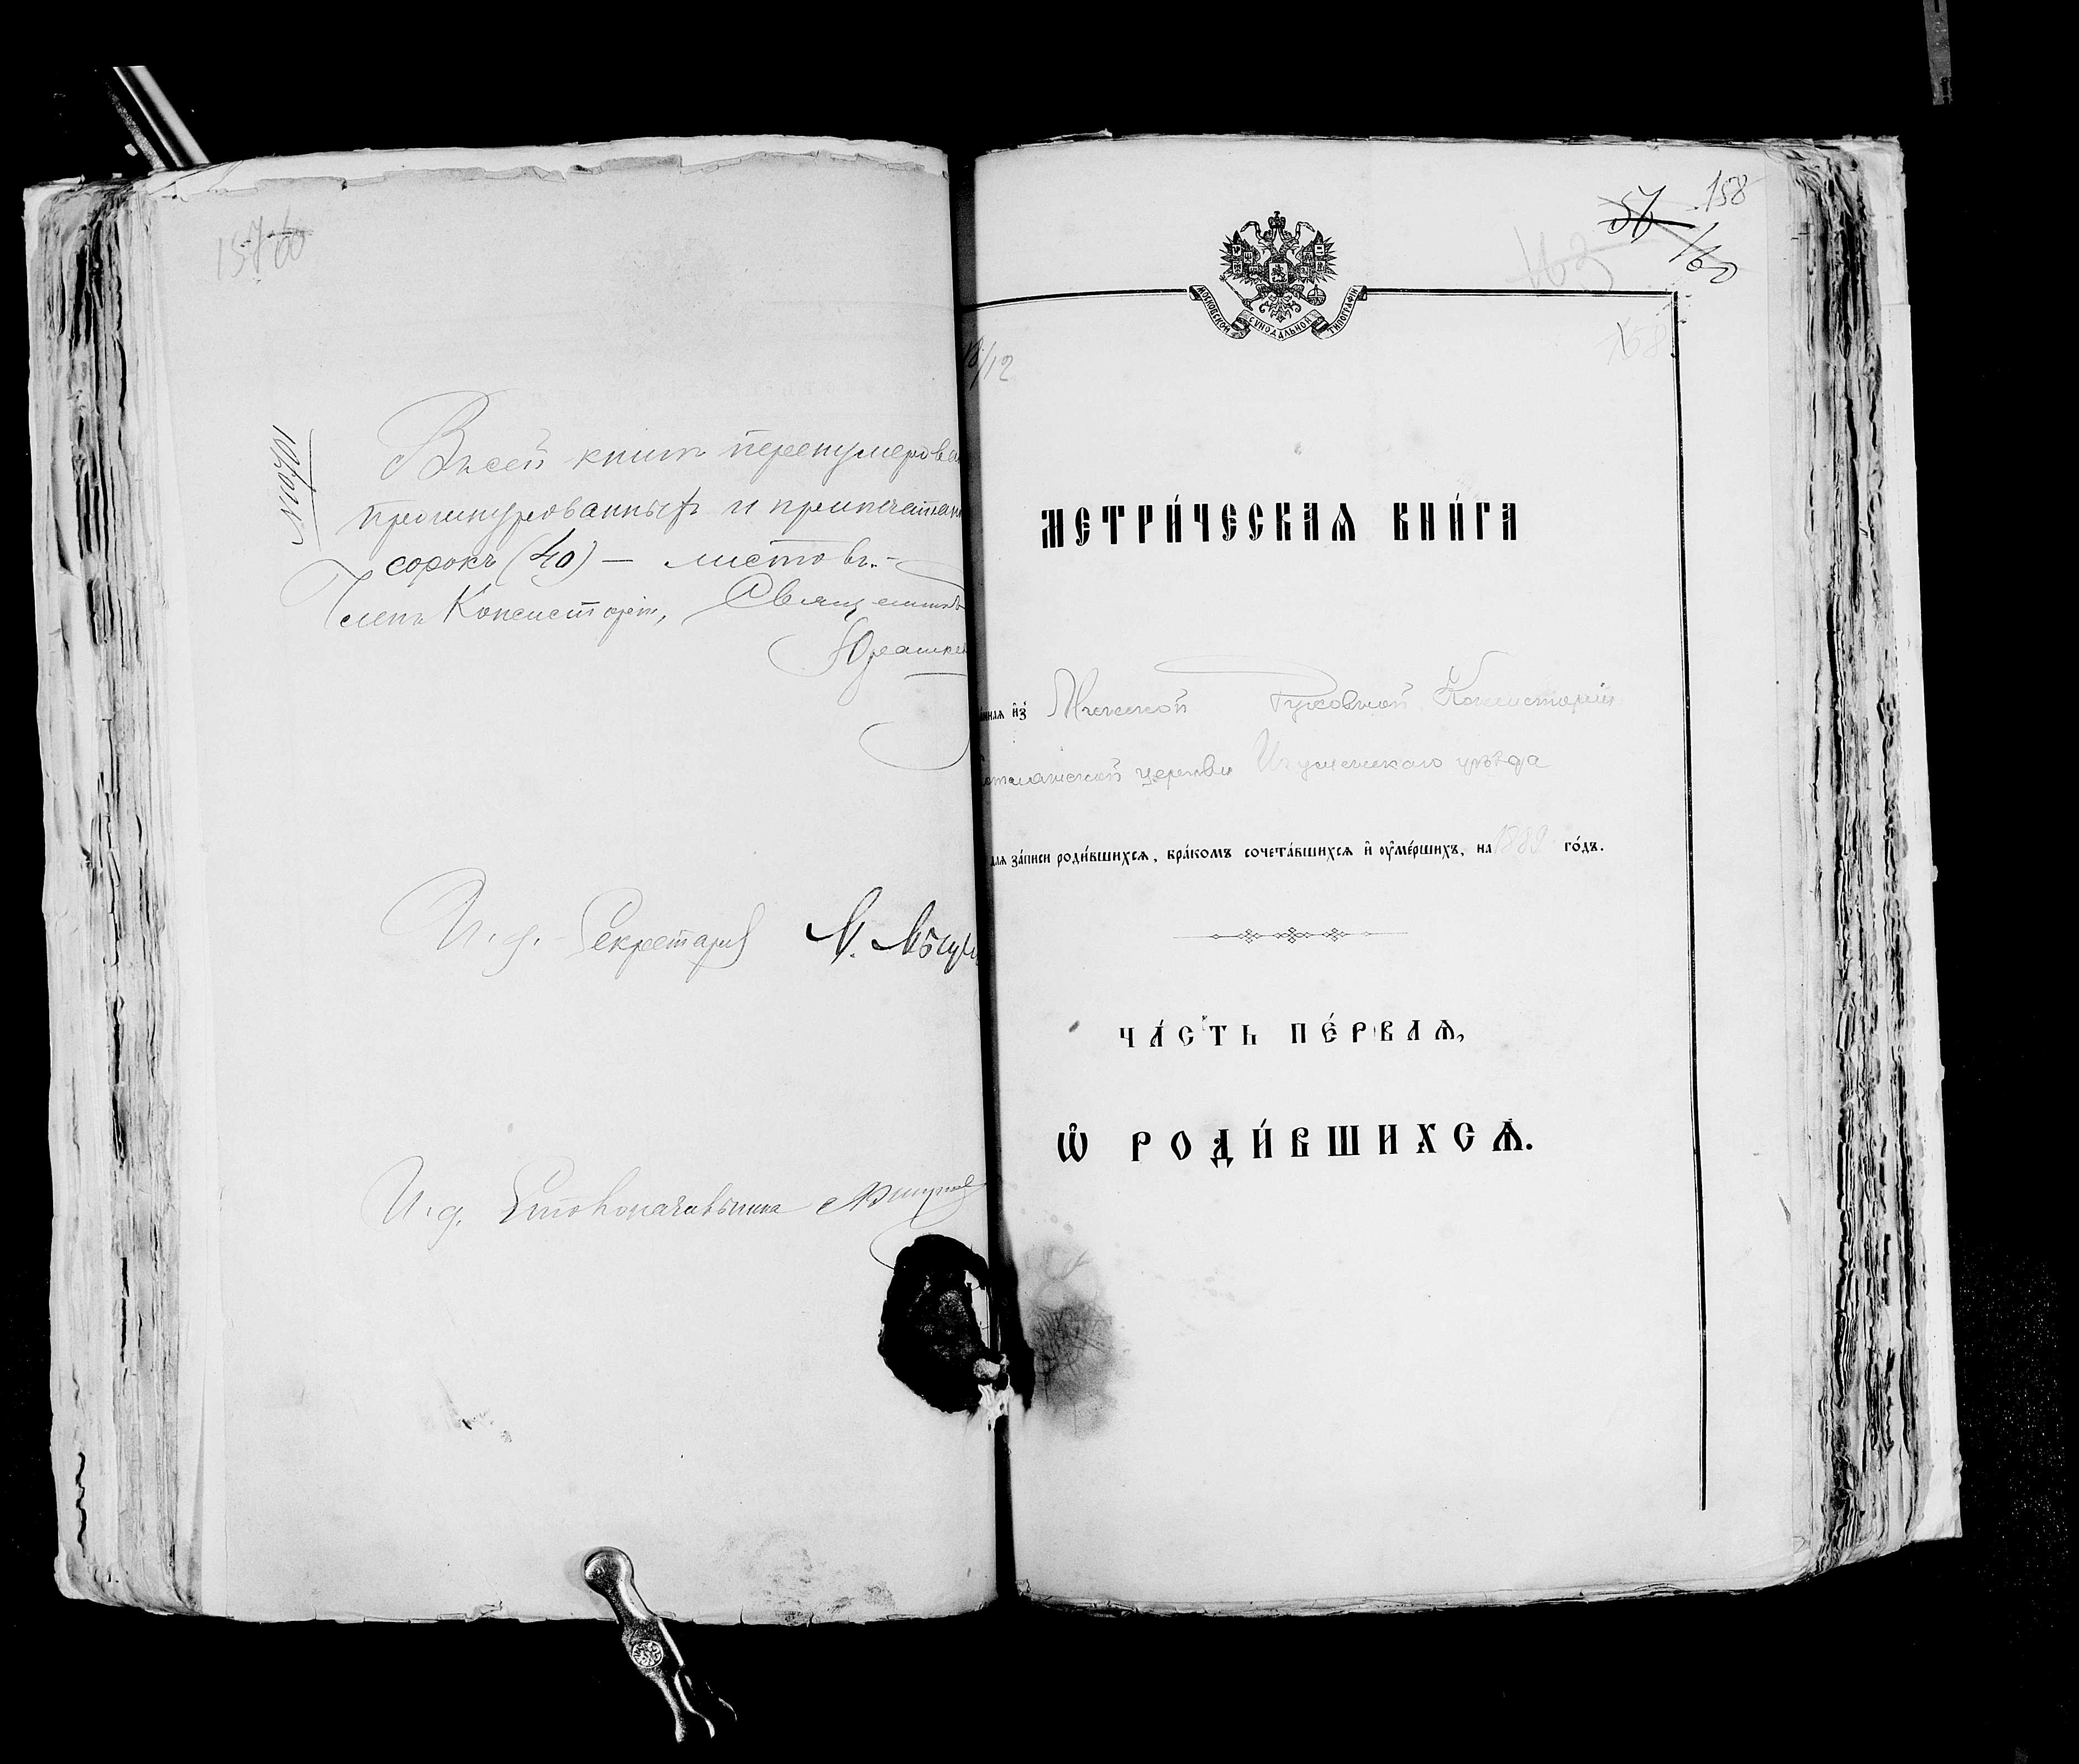 157
№ 10701
Въ сей книгѣ перенумерова
прошнурованныхъ и припечатан
сорокъ (40) — листовъ.-
Членъ Консисторіи, Священникъ
Юрашке
И. д. Секретаря
И. д. Столоначальника
158
160
163
158
МОСКОВСКОЙ СѴНОДАЛЬНОЙ ТИПОГРАФІИ
/12
МЕТРИ́ЧЕСКАѦ КНИ́ГА
нная и҆з̾ Минской Духовной Консисторіи
церкви Игуменскаго уѣзда
для за́писи роди́вшихсѧ, бра́комъ сочета́вшихсѧ и҆ ᲂу҆ме́ршихъ, на 1889 го́дъ.
ЧА́СТЬ ПЕ́РВАѦ,
Ѡ҆ РОДИ́ВШИХСѦ.